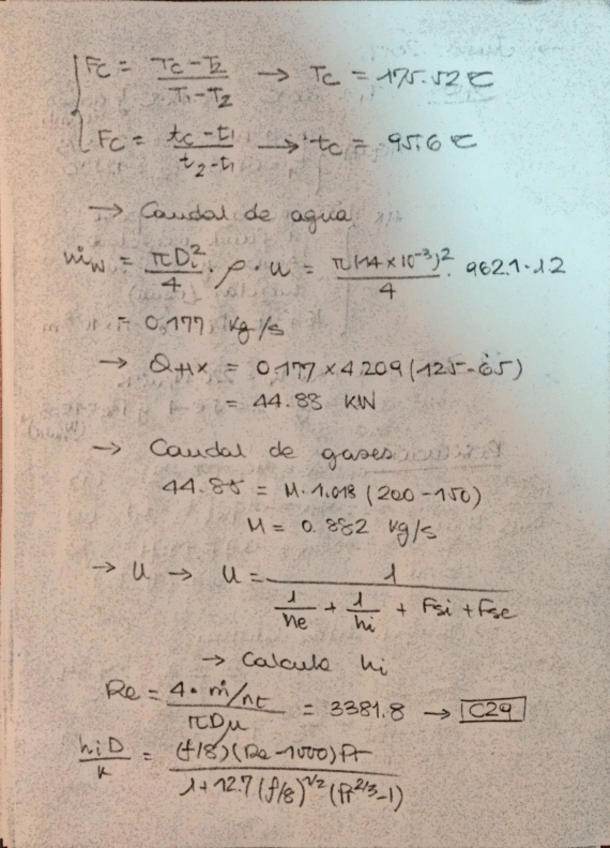 Fc = (Tc - T2)/(T1 - T2) → Tc = 175.52 ℃
Fc = (tc - t1)/(t2 - t1) → tc = 95.6 ℃
→ Caudal de agua
ṁw = πDi²/4 · ρ · u = π(14×10⁻³)²/4 · 962.1 · 1.2
= 0.177 kg/s
→ QHX = 0.177 × 4.209 (125-65)
= 44.88 KW
→ Caudal de gases
44.88 = M · 1.018 (200-150)
M = 0.882 kg/s
→ U → U = 1/(1/he + 1/hi + Fsi + Fse)
→ Calculo hi
Re = (4 · ṁ/nt)/(πDμ) = 3381.8 → C29
hiD/k = (f/8)(Re-1000)Pr/(1+12.7(f/8)^1/2 (Pr^2/3-1))